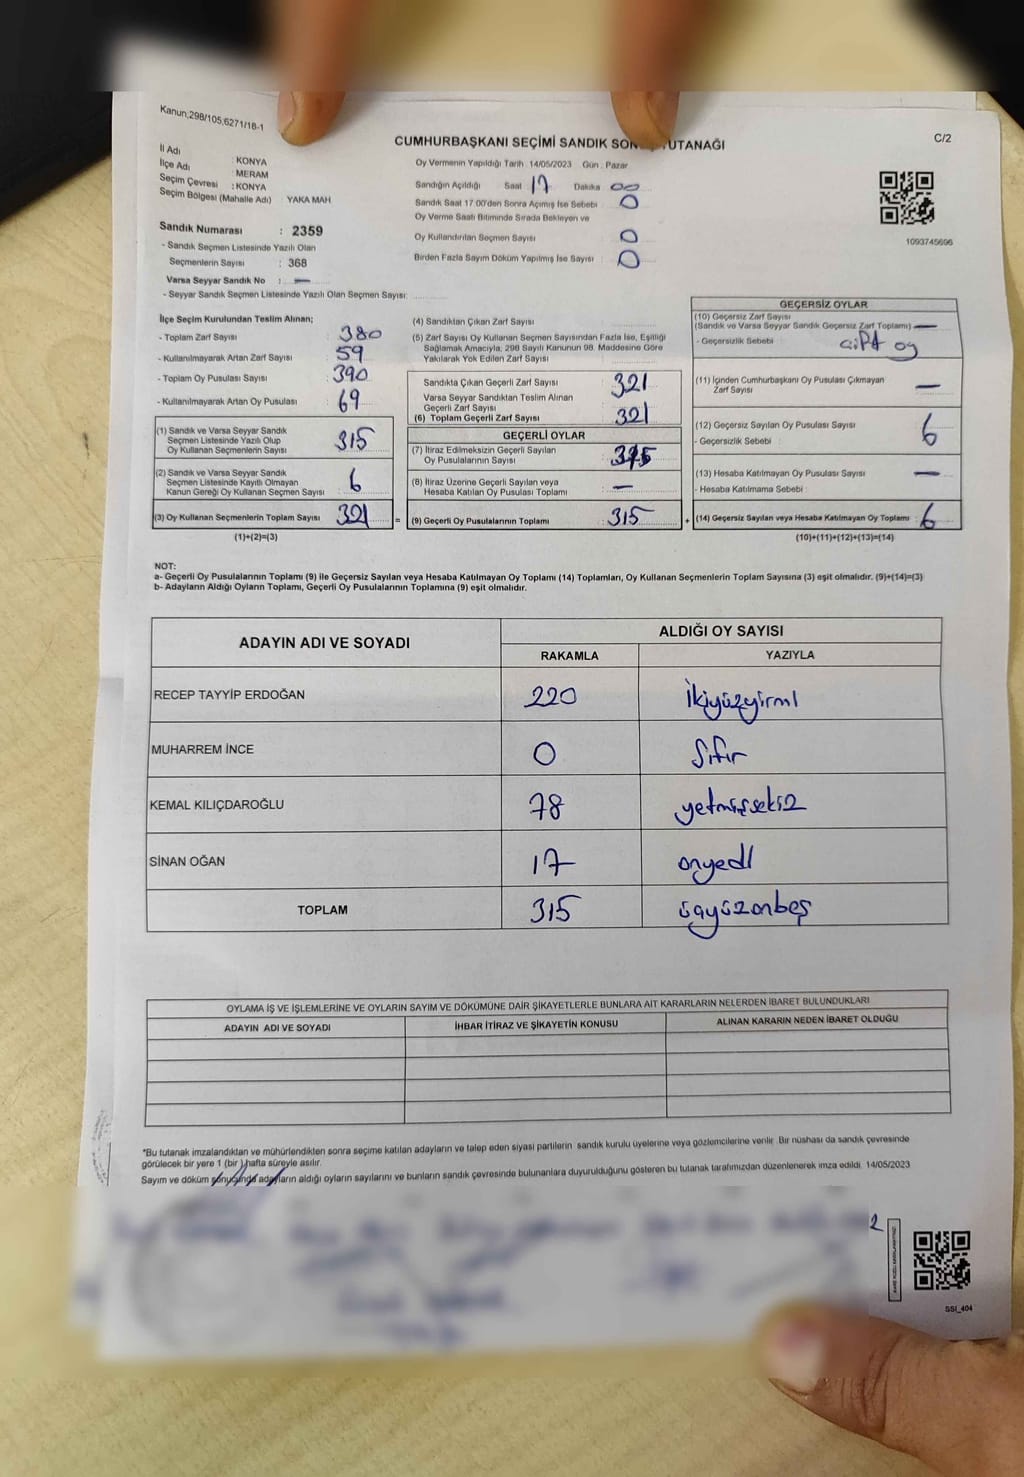 Kanun;298/105,6271/18-1
CUMHURBAŞKANI SEÇİMİ SANDIK SON UTANAĞI
C/2
İl Adı : KONYA
İlçe Adı : MERAM
Seçim Çevresi : KONYA
Seçim Bölgesi (Mahalle Adı) : YAKA MAH
Sandık Numarası : 2359
- Sandık Seçmen Listesinde Yazılı Olan
Seçmenlerin Sayısı : 368
Varsa Seyyar Sandık No : —
- Seyyar Sandık Seçmen Listesinde Yazılı Olan Seçmen Sayısı:
Oy Vermenin Yapıldığı Tarih :14/05/2023 Gün : Pazar
Sandığın Açıldığı Saat 17 Dakika 00
Sandık Saat 17.00'den Sonra Açımış İse Sebebi : 0
Oy Verme Saati Bitiminde Sırada Bekleyen ve
Oy Kullandırılan Seçmen Sayısı : 0
Birden Fazla Sayım Döküm Yapılmış İse Sayısı : 0
1093745696
İlçe Seçim Kurulundan Teslim Alınan;
- Toplam Zarf Sayısı : 380
- Kullanılmayarak Artan Zarf Sayısı : 59
- Toplam Oy Pusulası Sayısı : 390
- Kullanılmayarak Artan Oy Pusulası : 69
(1) Sandık ve Varsa Seyyar Sandık
Seçmen Listesinde Yazılı Olup
Oy Kullanan Seçmenlerin Sayısı : 315
(2) Sandık ve Varsa Seyyar Sandık
Seçmen Listesinde Kayıtlı Olmayan
Kanun Gereği Oy Kullanan Seçmen Sayısı : 6
(3) Oy Kullanan Seçmenlerin Toplam Sayısı : 321
(1)+(2)=(3)
(4) Sandıktan Çıkan Zarf Sayısı :
(5) Zarf Sayısı Oy Kullanan Seçmen Sayısından Fazla İse, Eşitliği
Sağlamak Amacıyla; 298 Sayılı Kanunun 98. Maddesine Göre
Yakılarak Yok Edilen Zarf Sayısı :
Sandıkta Çıkan Geçerli Zarf Sayısı : 321
Varsa Seyyar Sandıktan Teslim Alınan
Geçerli Zarf Sayısı :
(6) Toplam Geçerli Zarf Sayısı : 321
GEÇERLİ OYLAR
(7) İtiraz Edilmeksizin Geçerli Sayılan
Oy Pusulalarının Sayısı : 315
(8) İtiraz Üzerine Geçerli Sayılan veya
Hesaba Katılan Oy Pusulası Toplamı : —
= (9) Geçerli Oy Pusulalarının Toplamı : 315
GEÇERSİZ OYLAR
(10) Geçersiz Zarf Sayısı
(Sandık ve Varsa Seyyar Sandık Geçersiz Zarf Toplamı) : —
- Geçersizlik Sebebi : çift oy
(11) İçinden Cumhurbaşkanı Oy Pusulası Çıkmayan
Zarf Sayısı : —
(12) Geçersiz Sayılan Oy Pusulası Sayısı : 6
- Geçersizlik Sebebi :
(13) Hesaba Katılmayan Oy Pusulası Sayısı : —
- Hesaba Katılmama Sebebi :
+ (14) Geçersiz Sayılan veya Hesaba Katılmayan Oy Toplamı : 6
(10)+(11)+(12)+(13)=(14)
NOT:
a- Geçerli Oy Pusulalarının Toplamı (9) ile Geçersiz Sayılan veya Hesaba Katılmayan Oy Toplamı (14) Toplamları, Oy Kullanan Seçmenlerin Toplam Sayısına (3) eşit olmalıdır. (9)+(14)=(3)
b- Adayların Aldığı Oyların Toplamı, Geçerli Oy Pusulalarının Toplamına (9) eşit olmalıdır.
ADAYIN ADI VE SOYADI ALDIĞI OY SAYISI
RAKAMLA YAZIYLA
RECEP TAYYİP ERDOĞAN 220 ikiyüzyirmi
MUHARREM İNCE 0 Sıfır
KEMAL KILIÇDAROĞLU 78 yetmişsekiz
SİNAN OĞAN 17 onyedi
TOPLAM 315 üçyüzonbeş
OYLAMA İŞ VE İŞLEMLERİNE VE OYLARIN SAYIM VE DÖKÜMÜNE DAİR ŞİKAYETLERLE BUNLARA AİT KARARLARIN NELERDEN İBARET BULUNDUKLARI
ADAYIN ADI VE SOYADI İHBAR İTİRAZ VE ŞİKAYETİN KONUSU ALINAN KARARIN NEDEN İBARET OLDUĞU
*Bu tutanak imzalandıktan ve mühürlendikten sonra seçime katılan adayların ve talep eden siyasi partilerin sandık kurulu üyelerine veya gözlemcilerine verilir. Bir nüshası da sandık çevresinde
görülecek bir yere 1 (bir ) hafta süreyle asılır.
Sayım ve döküm sonucunda adayların aldığı oyların sayılarını ve bunların sandık çevresinde bulunanlara duyurulduğunu gösteren bu tutanak tarafımızdan düzenlenerek imza edildi. 14/05/2023
2
SSI_404